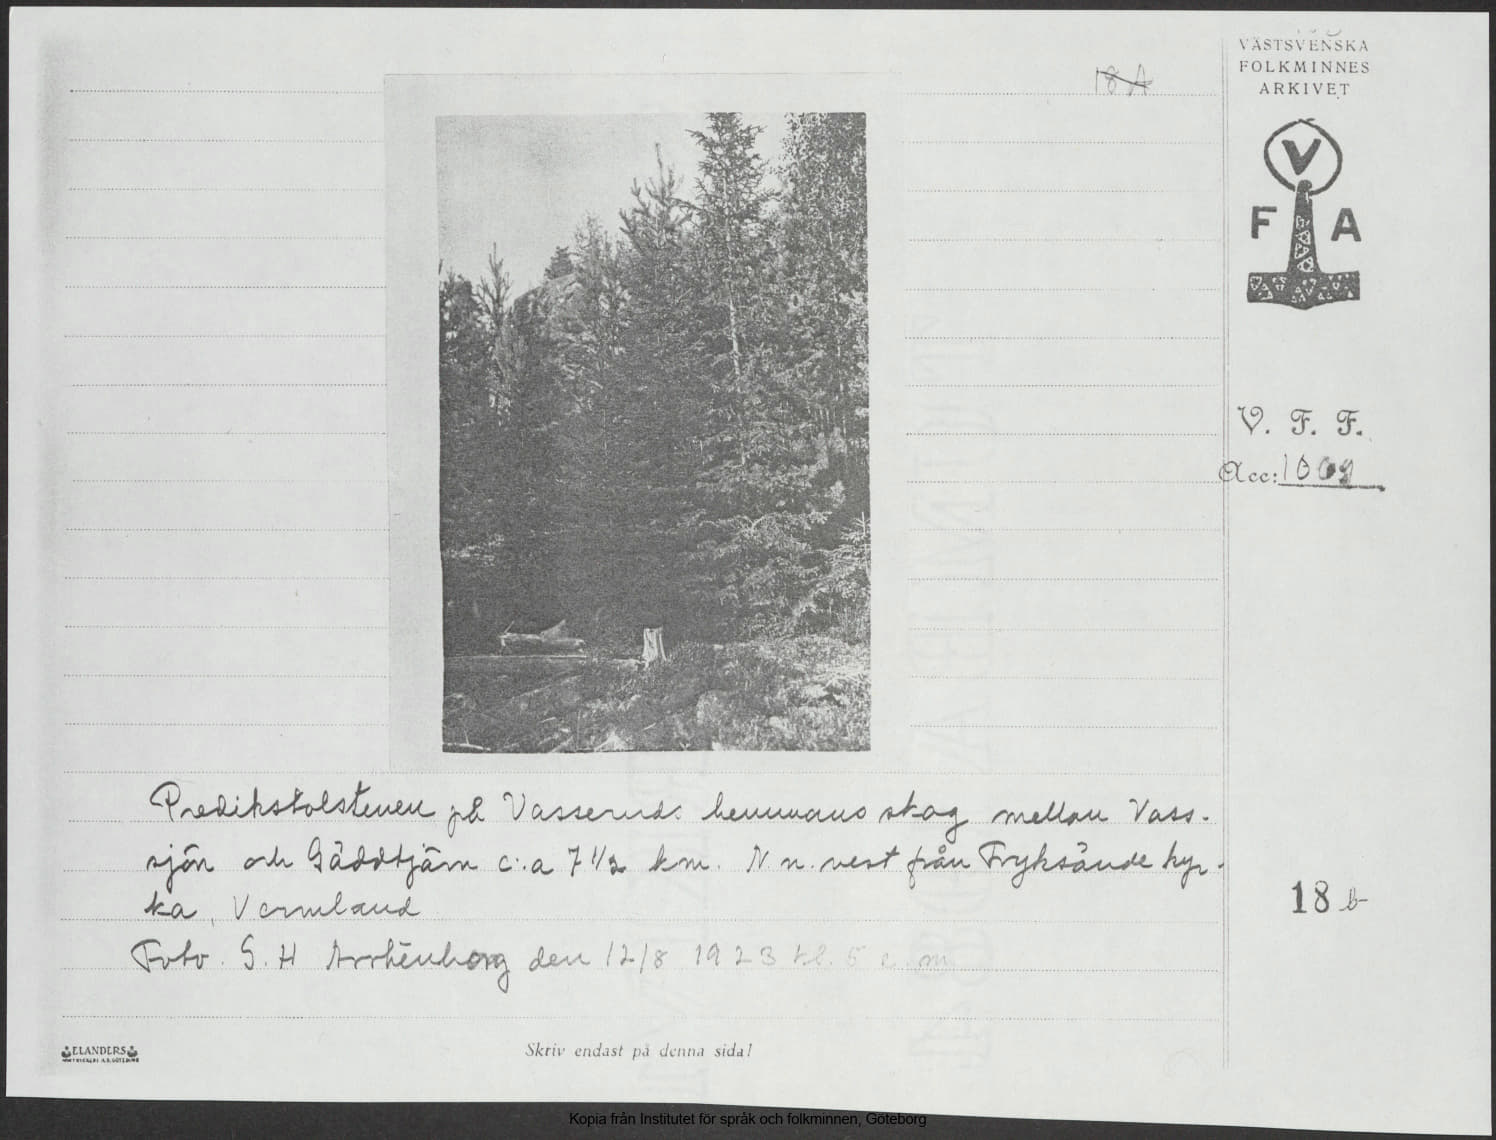 18 A
VÄSTSVENSKA
FOLKMINNES
ARKIVET
V
F A
V. F. F.
Acc: 1009
Predikstolstenen på Vasseruds hemmans skog mellan Vass-
sjön och Gäddtjärn c:a 7 1/2 km. N.n.vest från Fryksände kyr-
ka, Vermland
18 b
Foto. G. H Arrhenborg den 12/8 1923 kl. 5 e. m
ELANDERS
Skriv endast på denna sida!
Kopia från Institutet för språk och folkminnen, Göteborg